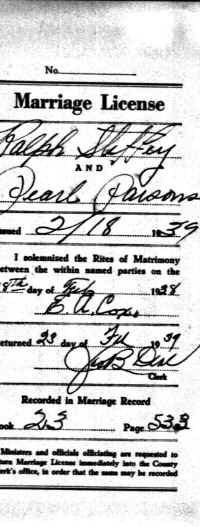 No.
Marriage License
Ralph Steffey
AND
Pearl Parsons
sued 2/18 1939
I solemnized the Rites of Matrimony
etween the within named parties on the
8th day of Feb 1938
E. A. Cox
eturned 23 day of Feb 1939
Clerk
Recorded in Marriage Record
ook 23 Page 533
Ministers and officials officiating are requested to
turn Marriage License immediately into the County
lerk's office, in order that the same may be recorded